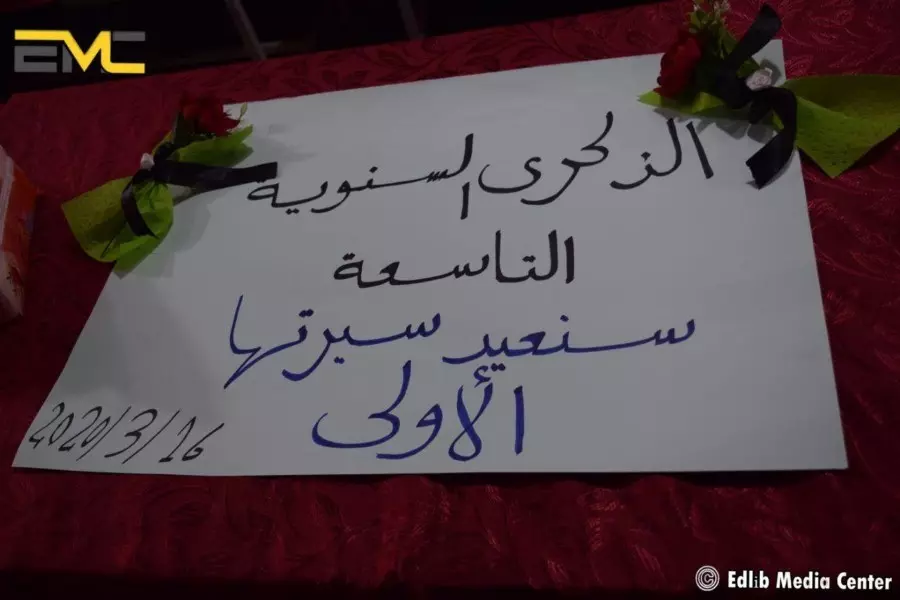 EMC
الذكرى السنوية
التاسعة
سنعيد سيرتها
الأولى
2020/3/16
© Edlib Media Center